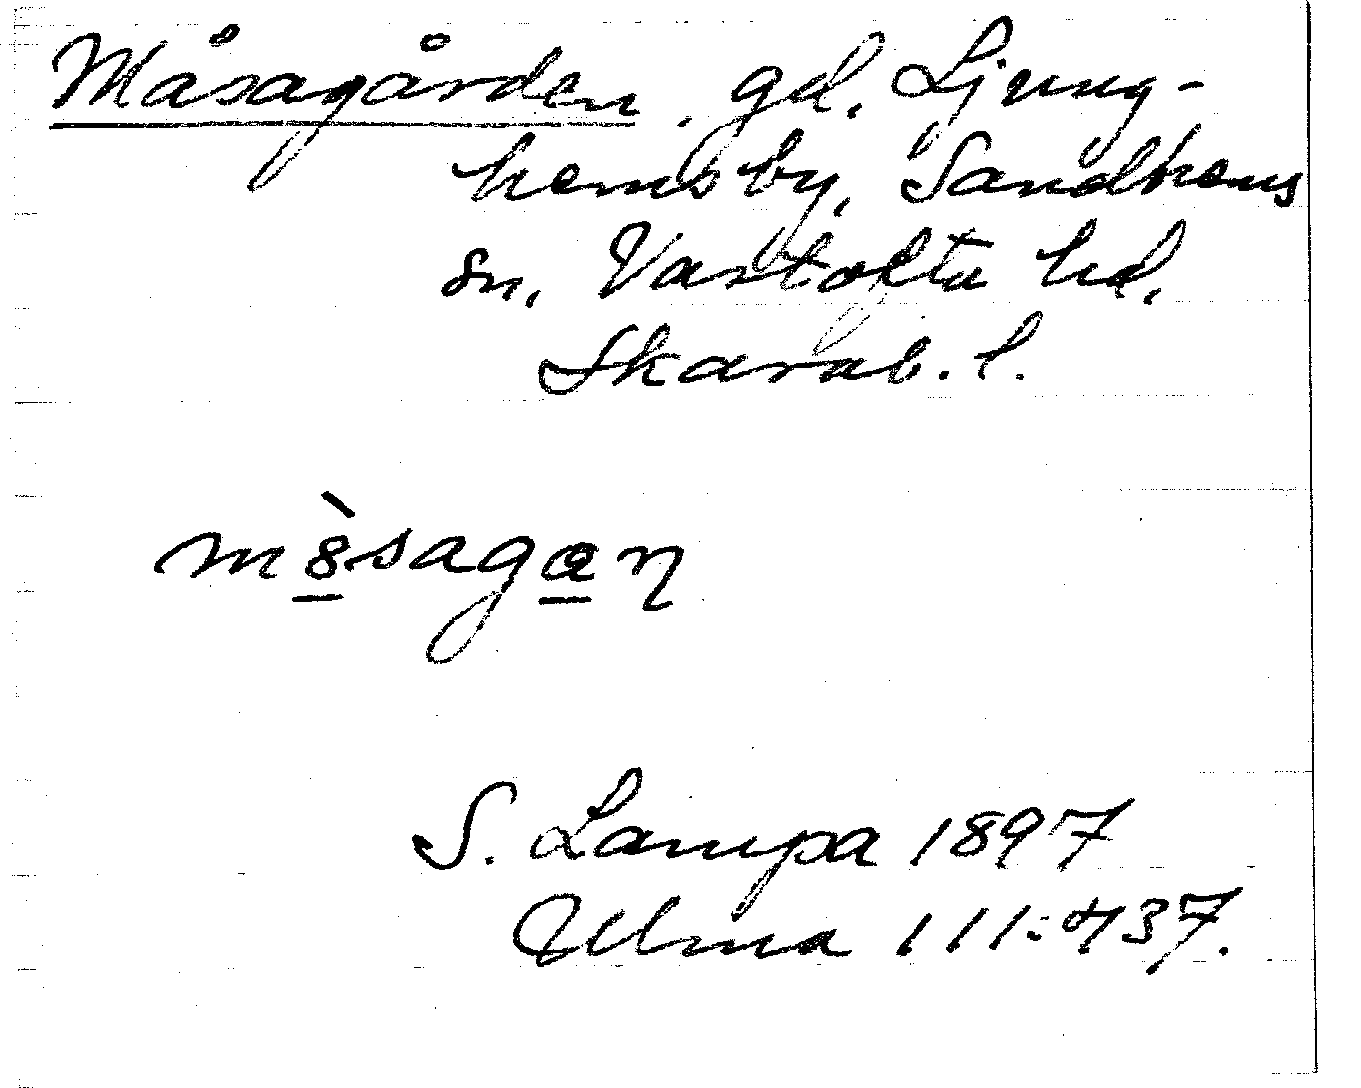 Måsagården. gd. Ljung-
hems by, Sandhems
sn. Vartofta hd.
Skarab. l.
mò̲saga̲n
S. Lampa 1897
Ulma 111:437.